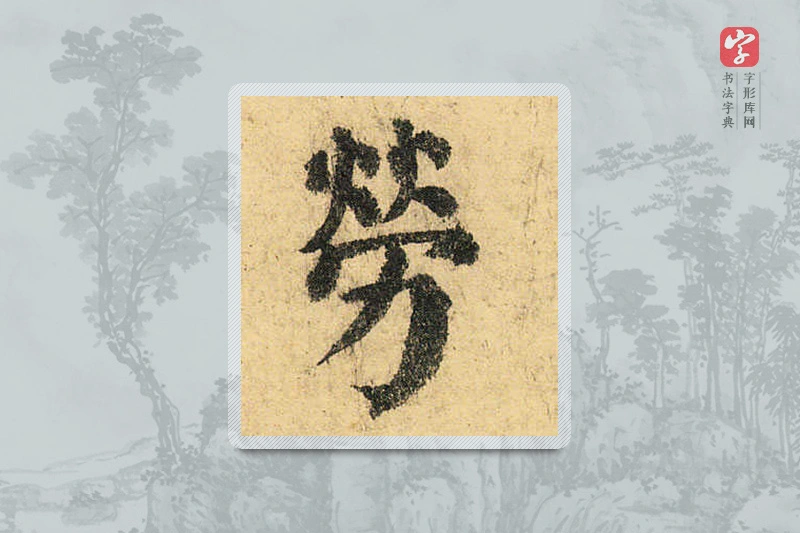 勞
字
字形库网
书法字典